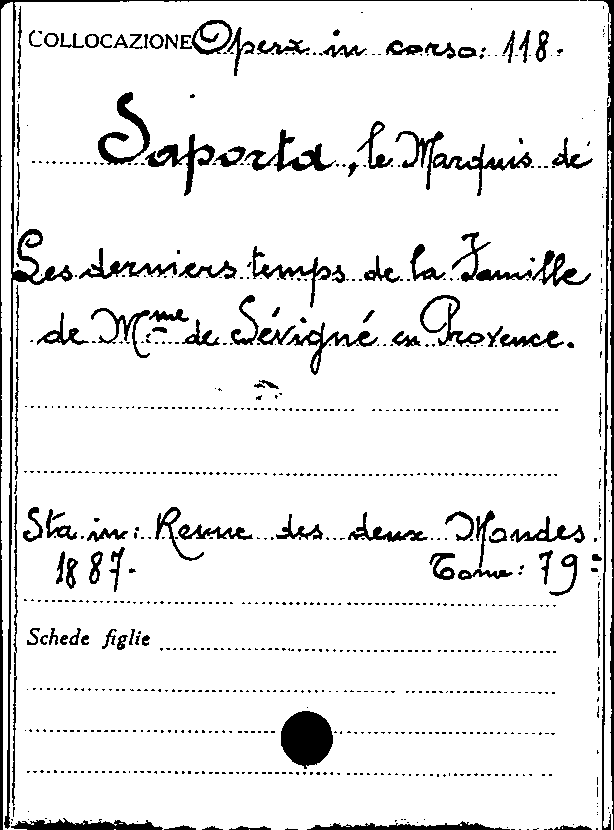 COLLOCAZIONE Opera in corso: 118.
Saporta, le Marquis de
Les derniers temps de la Famille
de Mme de Sévigné en Provence.
Sta in: Revue des deux Mondes.
1887. Tome: 79=
Schede figlie